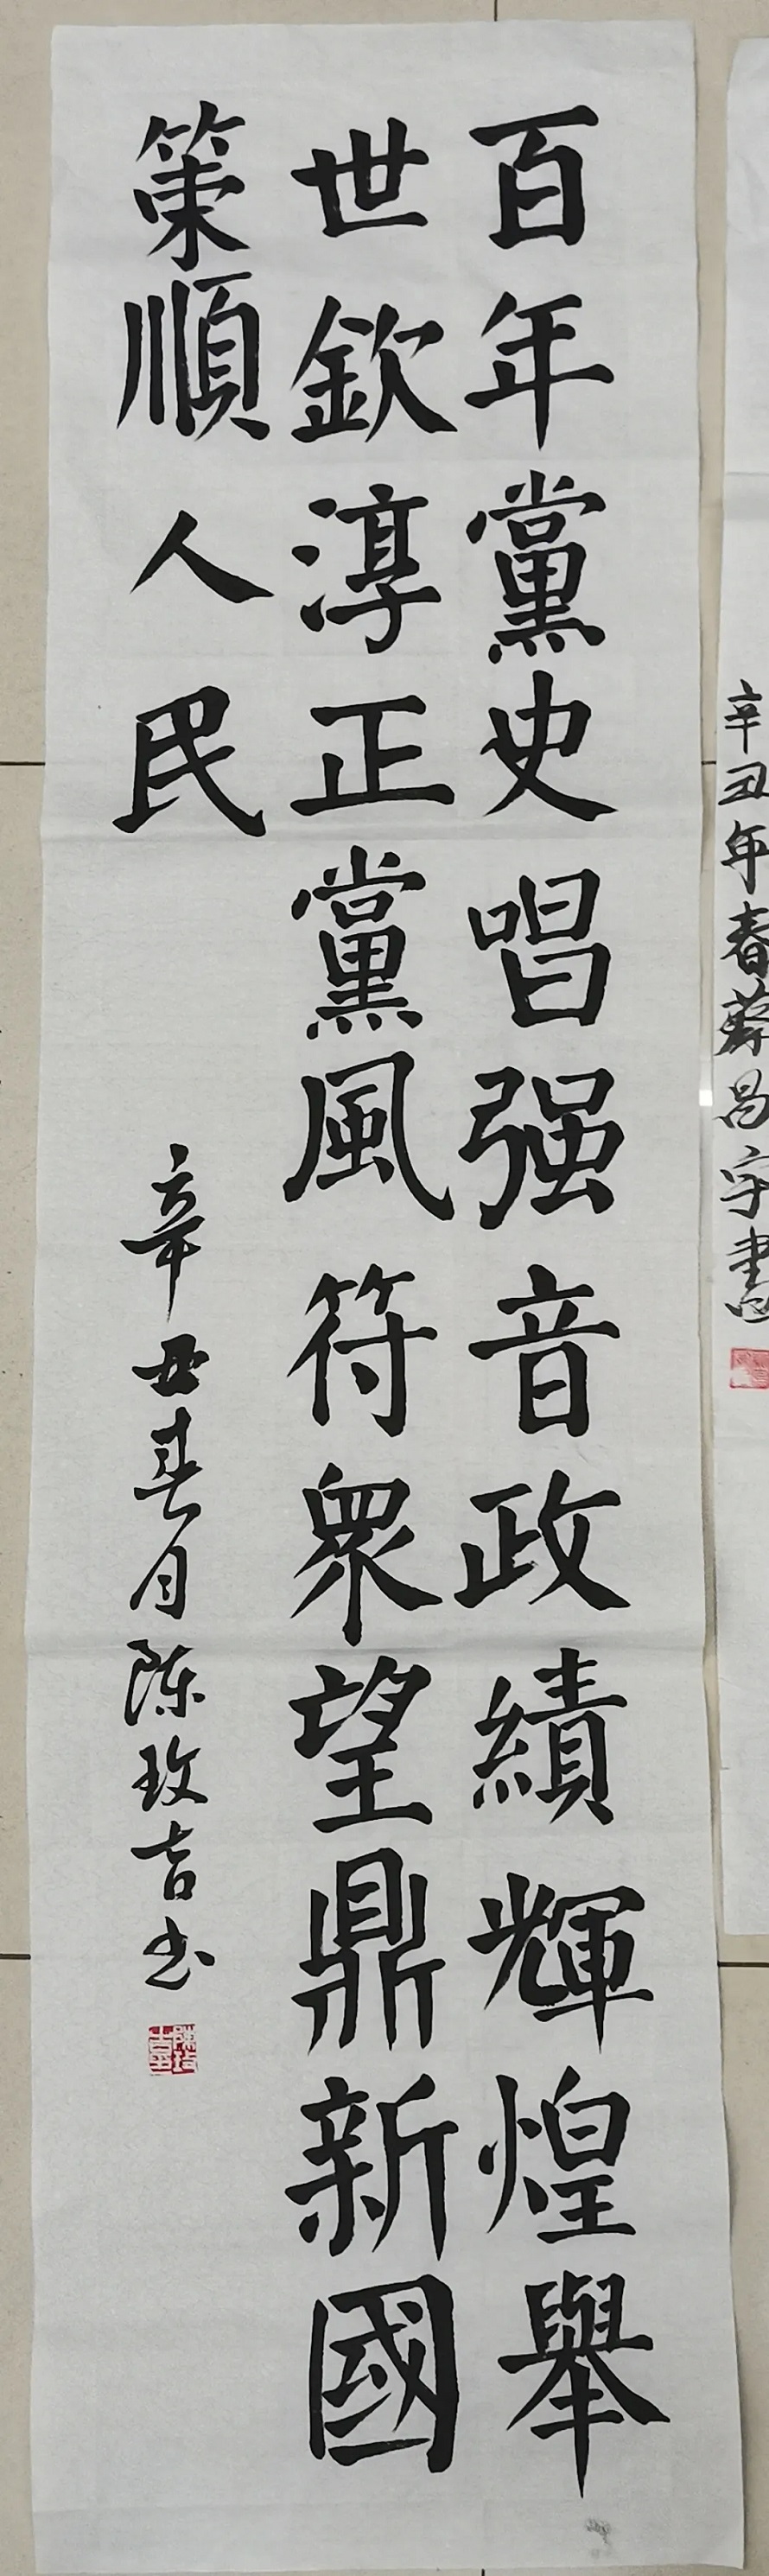 辛丑年春蔡昌宇書
百年黨史唱强音政績輝煌舉
世欽淳正黨風符衆望鼎新國
策順人民
辛丑春月陈玫吉书